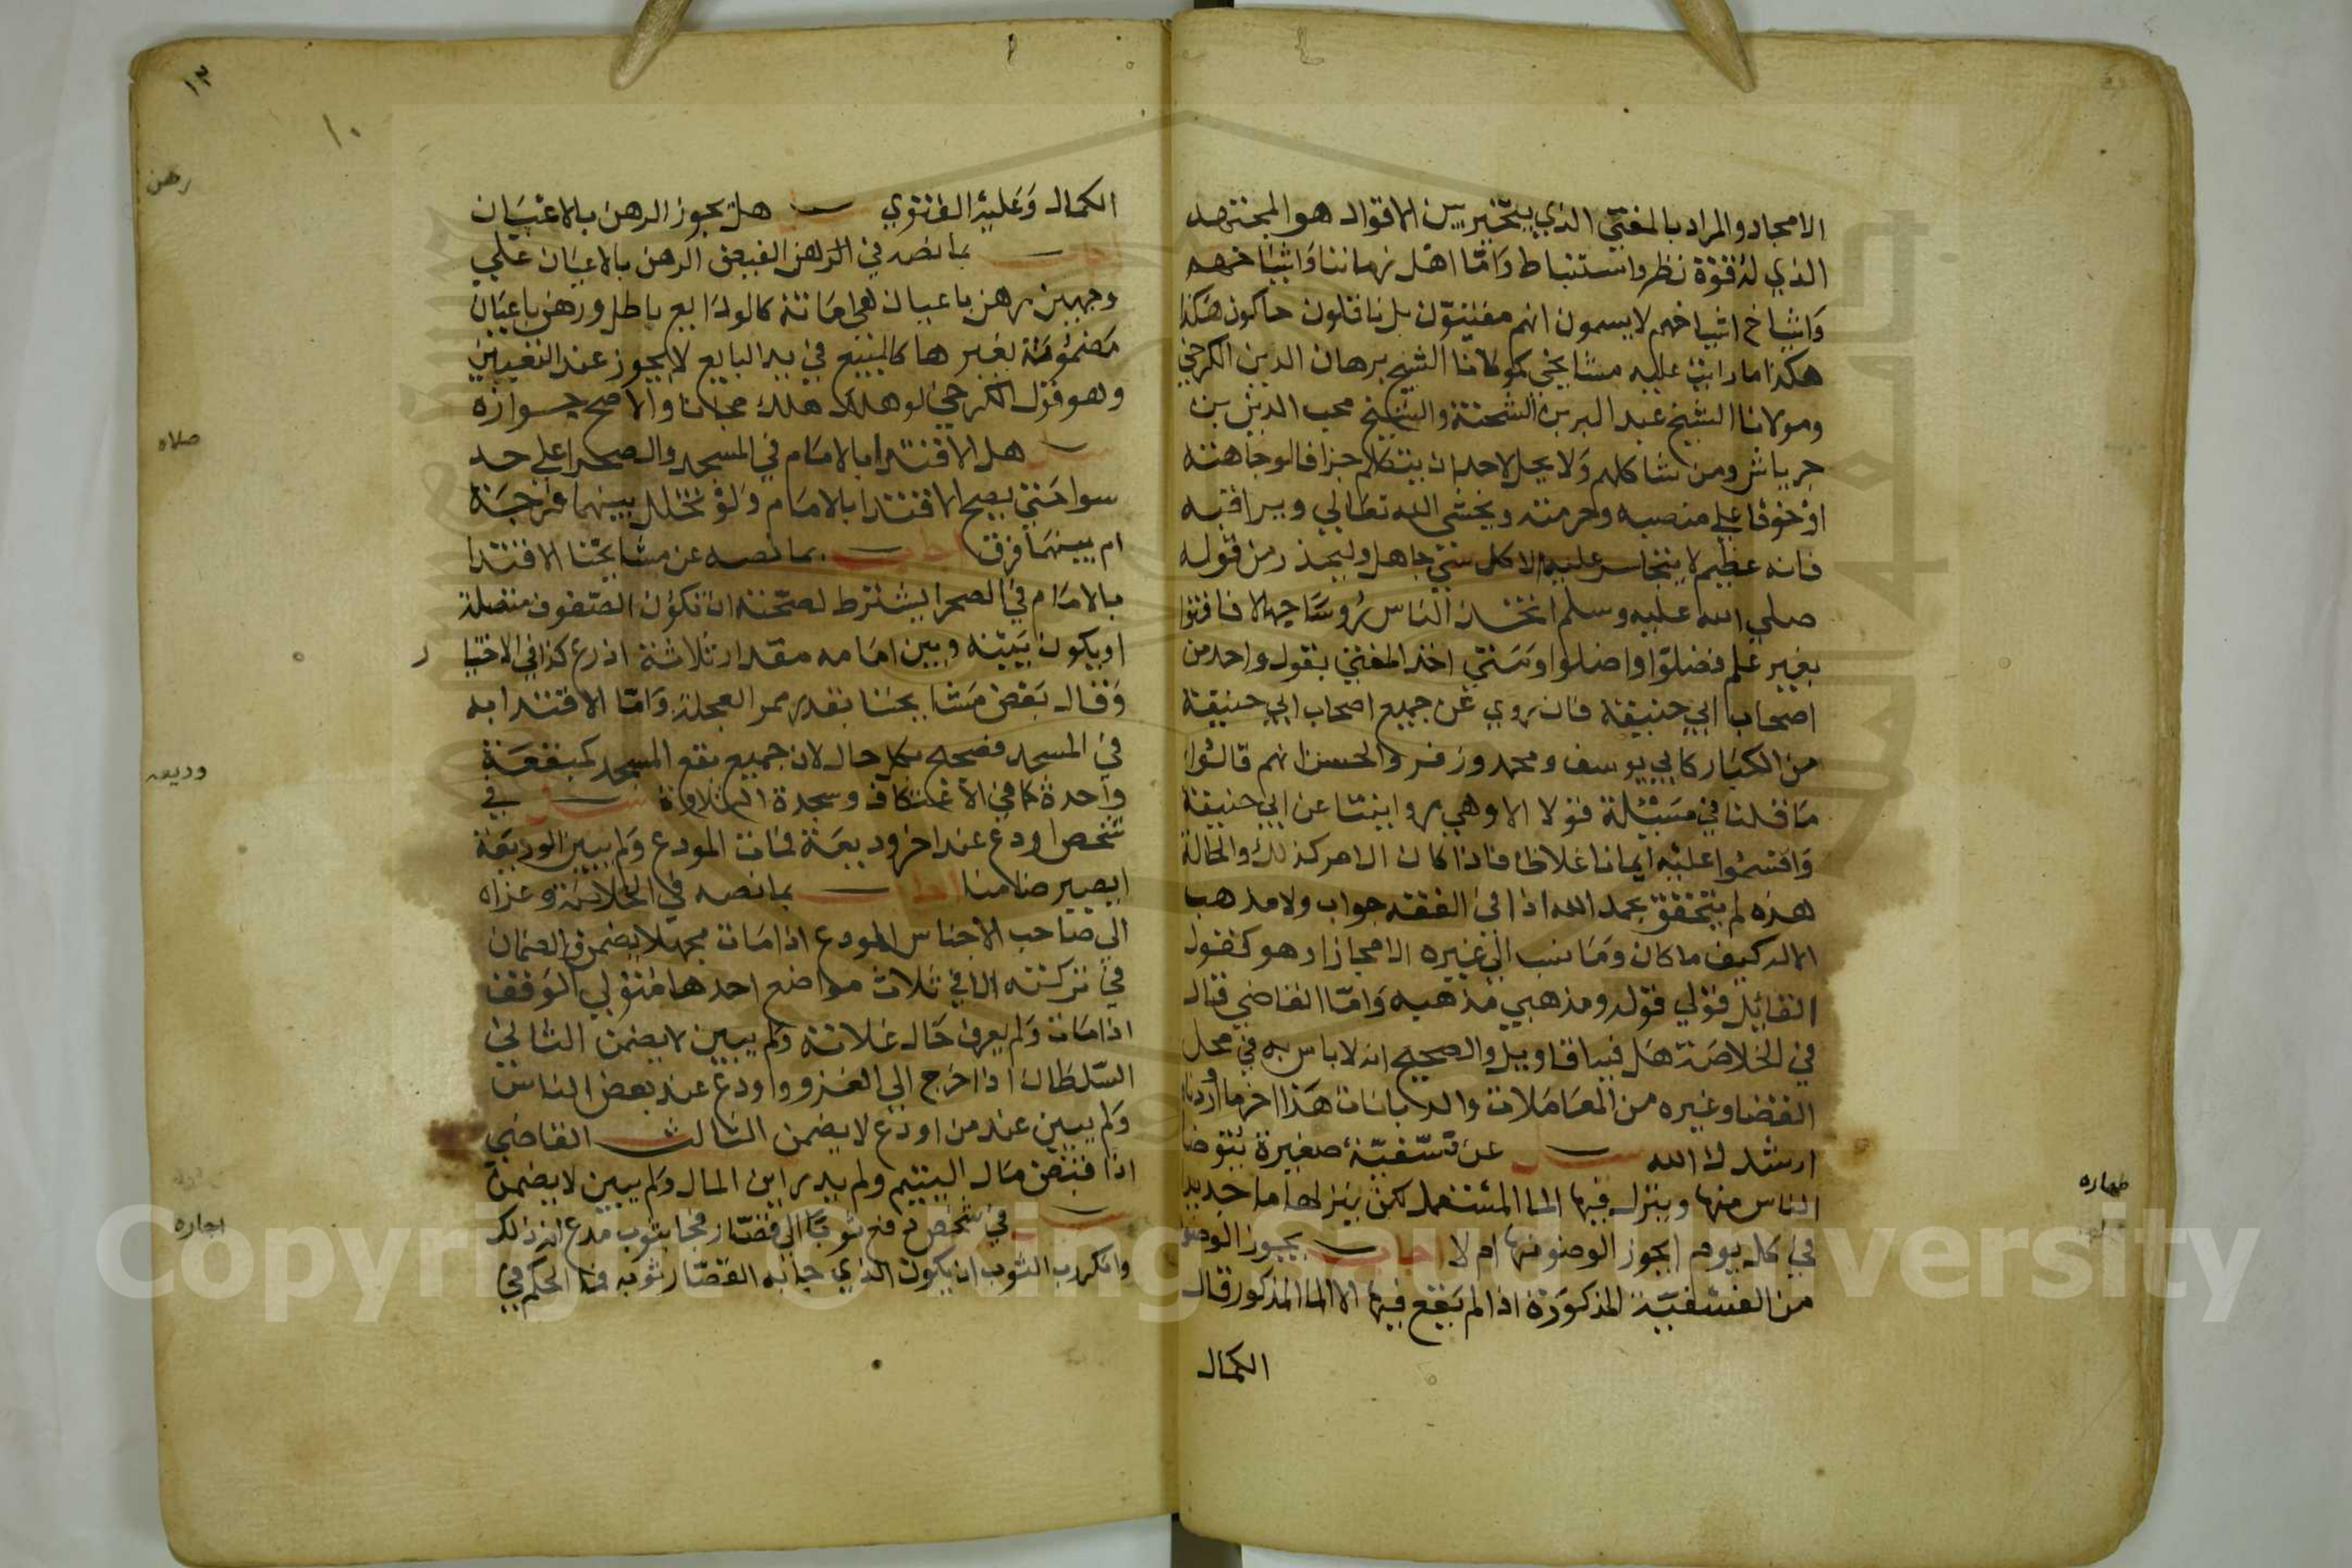 الامجاد والمراد بالمفتي الذي يتخير بين الاقوال هو المجتهد
الذي له قوة نظر واستنباط واما اهل زماننا واشياخهم
واشياخ اشياخهم لا يسمون انهم مفتون بل ناقلون حاكون هكذا
هكذا ما رايت عليه مشايخي كمولانا الشيخ برهان الدين الكرخي
ومولانا الشيخ عبد البر بن الشحنة والشيخ محب الدين بن
جرباش ومن شاكلهم ولا يحل لاحد ان يتكلم جزافا لوجاهته
او خوفا على منصبه وحرمته ويخشى الله تعالى ويراقبه
فانه عظيم لا يتجاسر عليه الا كل شقي جاهل وليحذر من قوله
صلى الله عليه وسلم اتخذ الناس رؤسا جهالا فافتوا
بغير علم فضلوا واضلوا ومتى اخذ المفتي بقول واحد من
اصحاب ابي حنيفة فان روي عن جميع اصحاب ابي حنيفة
من الكبار كابي يوسف ومحمد وزفر والحسن انهم قالوا
ما قلنا في مسئلة قولا الا وهي روايتنا عن ابي حنيفة
واقسموا عليه ايمانا غلاظا فاذا كان الامر كذلك والحالة
هذه لم يتحقق بحمد الله اذا في الفقه جواب ولا مذهب
الا له كيف ما كان وما نسب الى غيره الا مجازا وهو كقول
القايل قولي قوله ومذهبي مذهبه واما القاضي قال
في الخلاصة هل فيها اقاويل والصحيح انه لا باس به في محل
القضا وغيره من المعاملات والديانات هذا اخر ما اردنا
ارشدك الله سئل عن فسقية صغيرة يتوضا
الناس منها وينزل فيها الما المستعمل لكن ينزلها ما جديد
في كل يوم ايجوز الوضو منها ام لا اجاب يجوز الوضو
من الفسقية المذكورة اذا لم يقع فيها الا الما المذكور قال
الكمال
طهاره
١٣
١٠
الكمال وعليه الفتوي سئل هل يجوز الرهن بالاعيان
اجاب بما نصه في الرهن الفيض الرهن بالاعيان علي
وجهين رهن باعيان هي امانة كالودايع باطل ورهن باعيان
مضمونة بغيرها كالمبيع في يد البايع لا يجوز عند البعض
وهو قول الكرخي لو هلك هلك مجانا والاصح جوازه
سئل هل الاقتدا بالامام في المسجد والصحرا علي حد
سوا حتي يصح الاقتدا بالامام ولو تخلل بينهما فرجة
ام بينهما فرق اجاب بما نصه عن مشايخنا الاقتدا
بالامام في الصحرا يشترط لصحته ان تكون الصفوف متصلة
او يكون بينه وبين امامه مقدار ثلاثة اذرع كذا في الاختيا
ر
وقال بعض مشايخنا بقدر ممر العجلة واما الاقتدا به
في المسجد فصحيح بكل حال لان جميع بقع المسجد كبقعة
واحدة كما في الاعتكاف وسجدة التلاوة سئل في
شخص اودع عند اخر وديعة فمات المودع ولم يبين الوديعة
ايصير ضامنا اجاب بما نصه في الخلاصة وعزاه
الي صاحب الاجناس المودع اذا مات مجهلا يضمن والضمان
في تركته الا في ثلاث مواضع احدها متولي الوقف
اذا مات ولم يعرف حال غلاته ولم يبين لا يضمن الثاني
السلطان اذا خرج الي الغزو واودع عند بعض الناس
ولم يبين عند من اودع لا يضمن الثالث القاضي
اذا قبض مال اليتيم ولم يدر اين المال ولم يبين لا يضمن
سئل في شخص دفع ثوبا الى قصار فجا بثوب مدع انه ذلك
وانكر رب الثوب ان يكون الذي جا به القصار ثوبه فما الحكم في
رهن
صلاه
وديعه
اجاره
Copyright © King Saud University